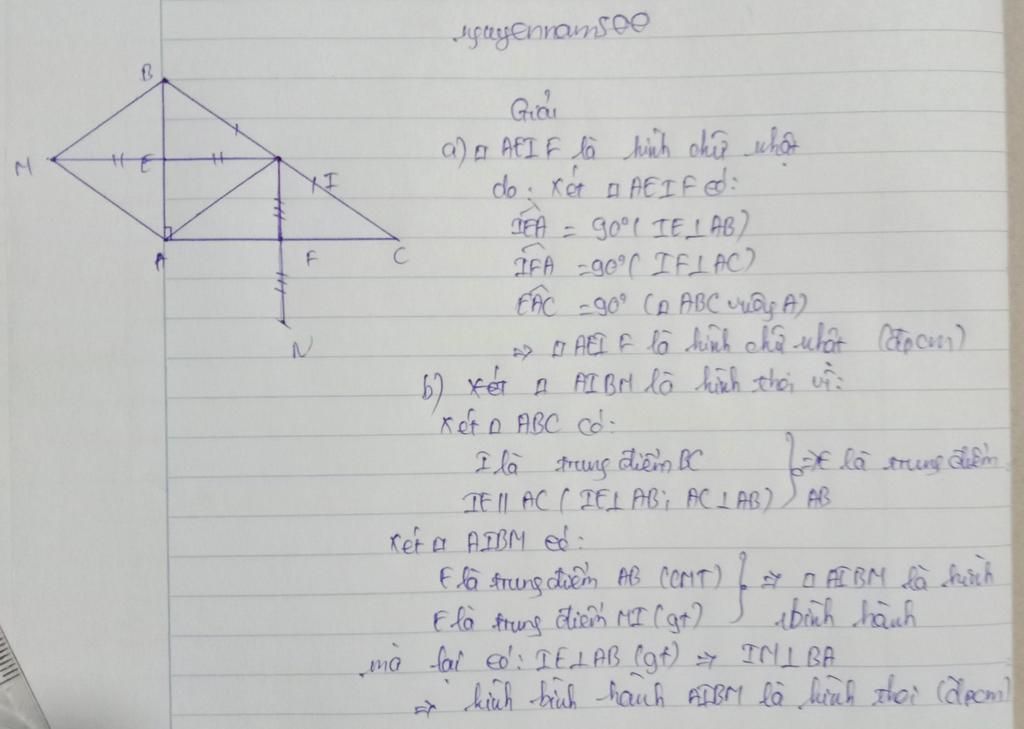 nguyennam500
B
M
E
I
A
F
C
N
Giải
a) □ AEIF là hình chữ nhật
do: Xét □ AEIF có:
IEA = 90° (IE⊥AB)
IFA = 90° (IF⊥AC)
EAC = 90° (□ ABC vuông A)
=> □ AEIF là hình chữ nhật (đpcm)
b) Xét □ AIBM là hình thoi vì:
Xét □ ABC có:
I là trung điểm BC
IE // AC (IE⊥AB; AC⊥AB) } => E là trung điểm AB
Xét □ AIBM có:
E là trung điểm AB (CMT)
E là trung điểm MI (gt) } => □ AIBM là hình bình hành
mà lại có: IE⊥AB (gt) => IM⊥BA
=> hình bình hành AIBM là hình thoi (đpcm)